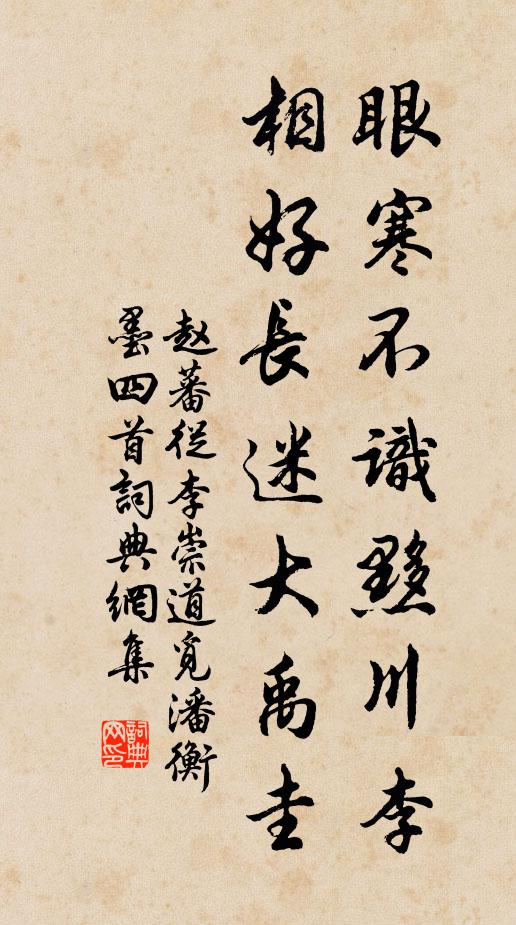 眼寒不識黟川李
相好長迷大禹圭
赵蕃從李崇道覓潘衡
墨四首詞典網集
詞典
网印